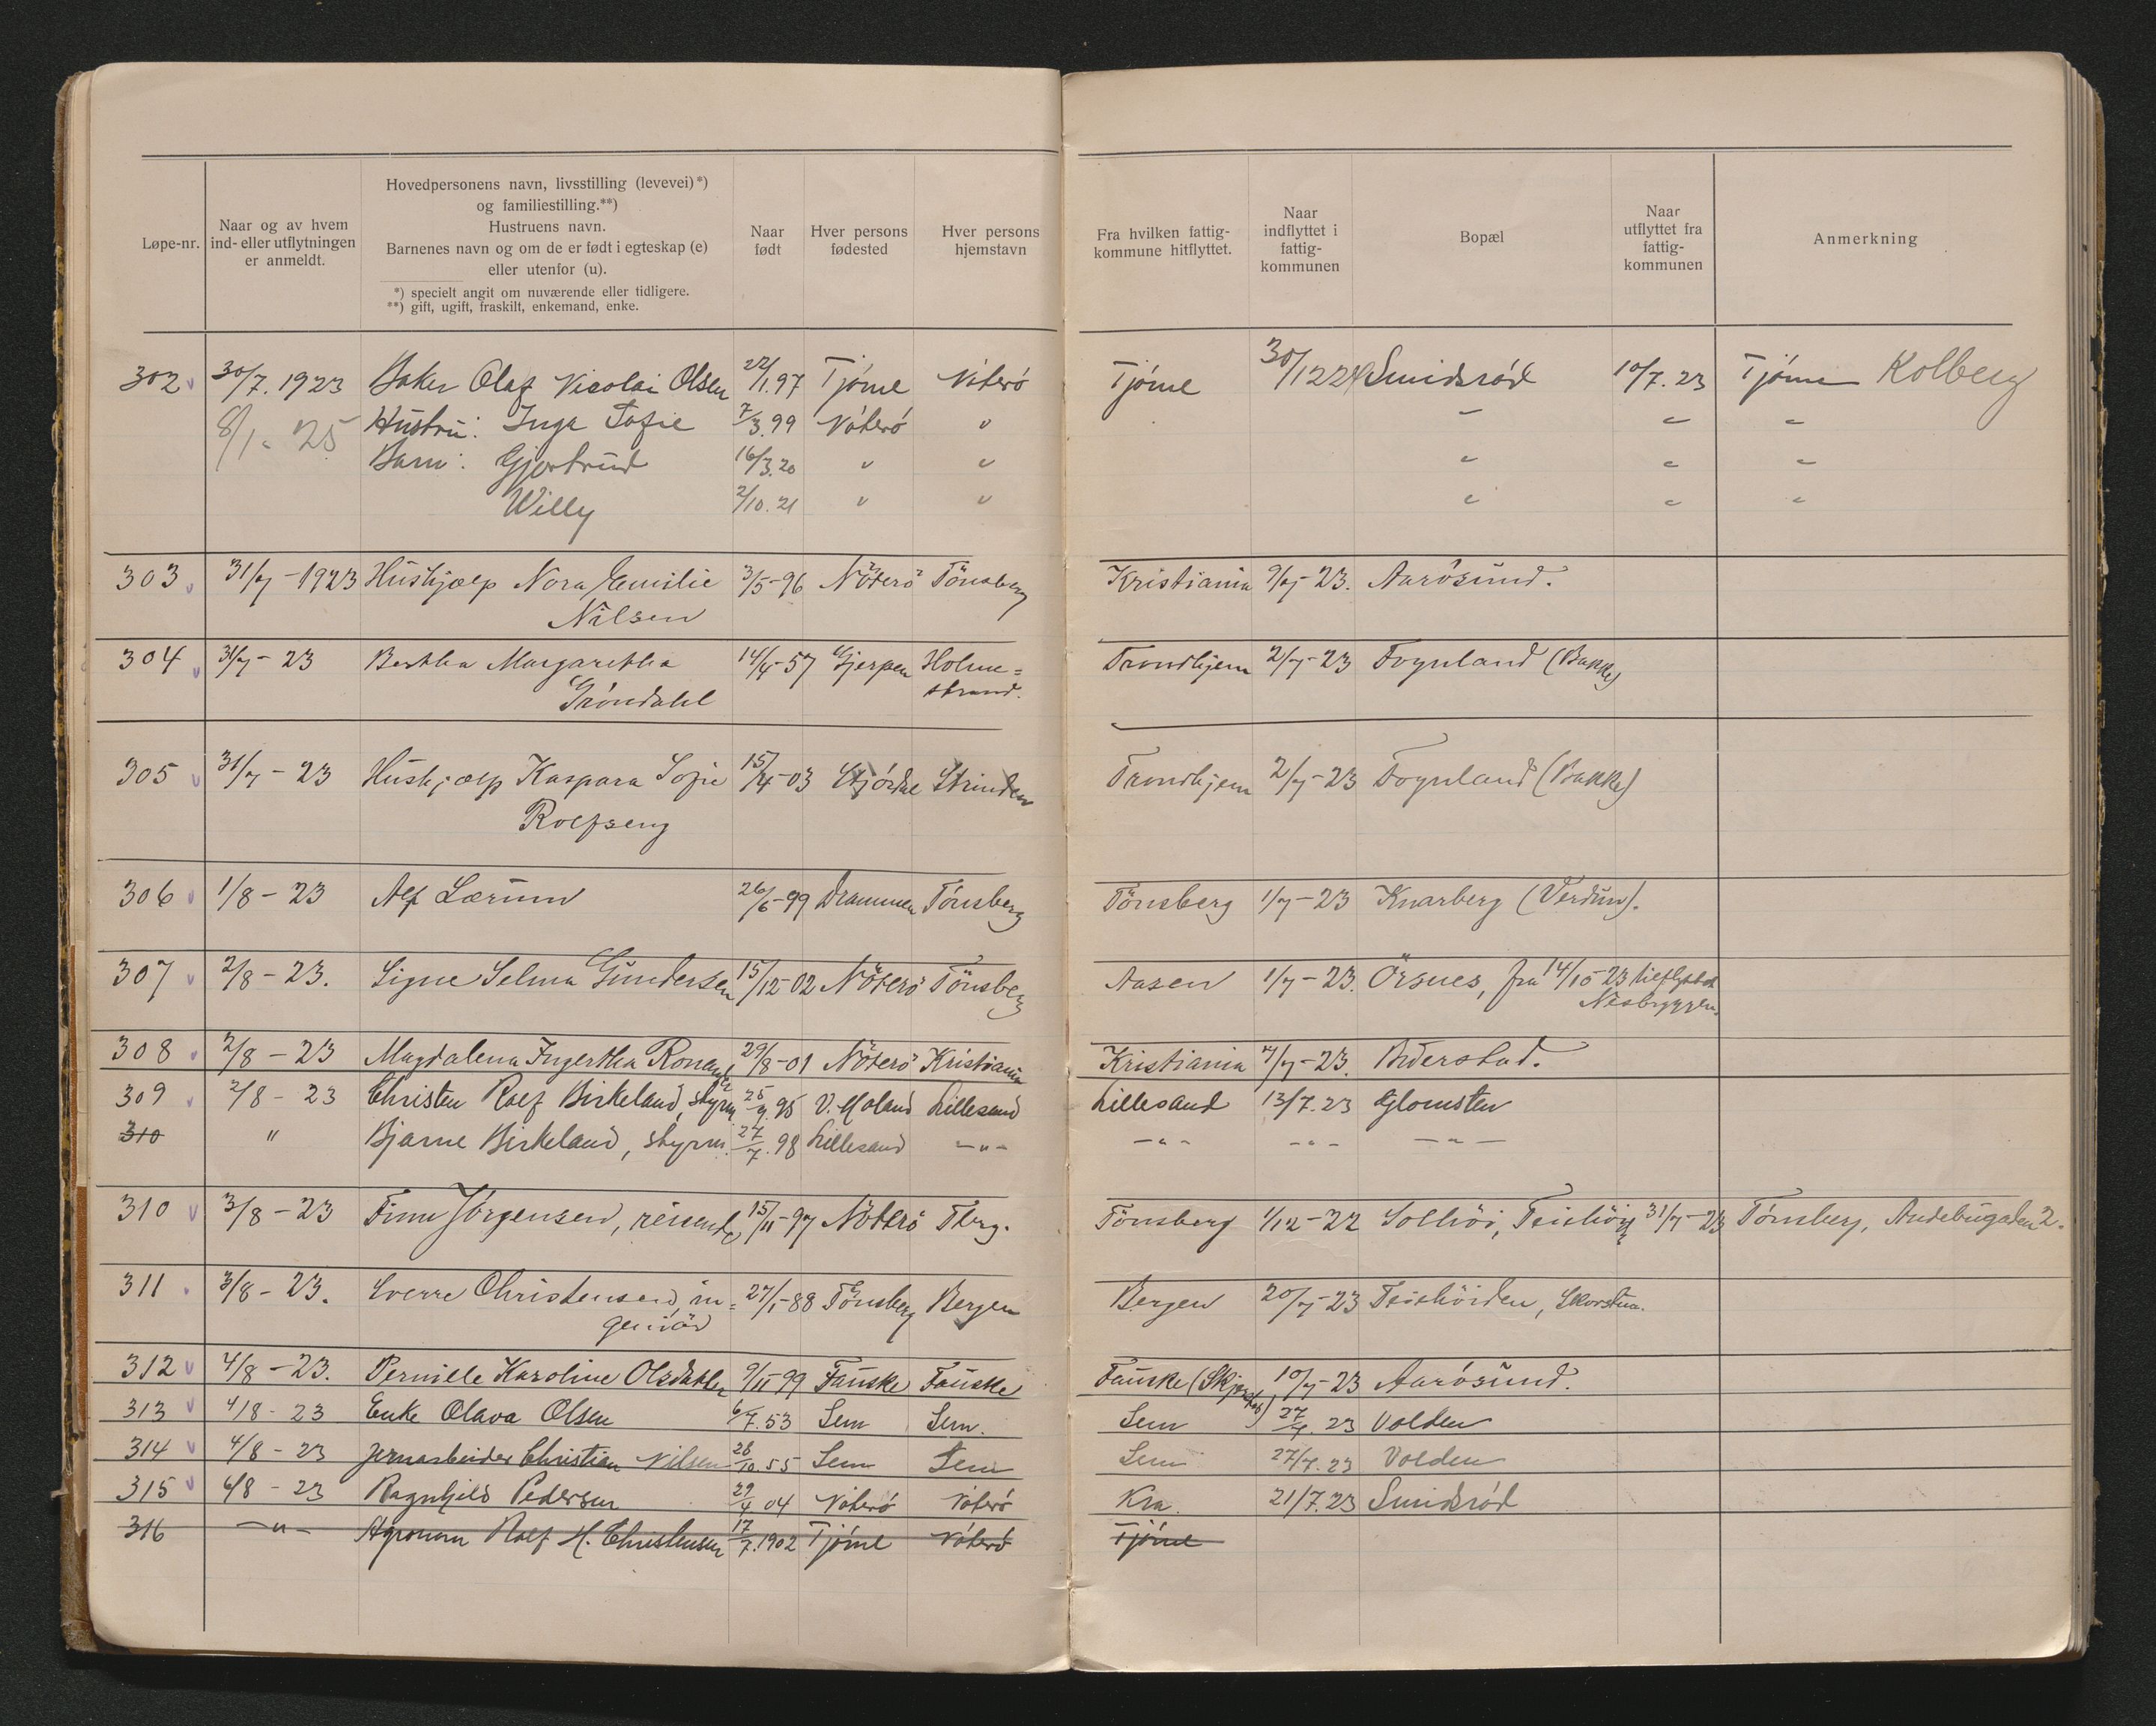 Løpe-nr.
Naar og av hvem
ind- eller utflytningen
er anmeldt.
Hovedpersonens navn, livsstilling (levevei)*)
og familiestilling.**)
Hustruens navn.
Barnenes navn og om de er født i egteskap (e)
eller utenfor (u).
*) specielt angit om nuværende eller tidligere.
**) gift, ugift, fraskilt, enkemand, enke.
Naar
født
Hver persons
fødested
Hver persons
hjemstavn
Fra hvilken fattig-
kommune hitflyttet.
Naar
indflyttet i
fattig-
kommunen
Bopæl
Naar
utflyttet fra
fattig-
kommunen
Anmerkning
302 30/7.1923 Baker Olaf Nicolai Olsen 22/1.97 Tjøme Nøterø Tjøme 30/12 22 Smidsrød 10/7.23 Tjøme Kolberg
8/1. 25 Hustru: Inga Sofie 7/3.99 Nøterø " " " "
Barn: Gjertrud 16/3.20 " " " " "
Willy 2/10.21 " " " " "
303 31/7-1923 Hushjælp Nora Emilie 3/5-96 Nöterö Tönsberg Kristiania 9/7-23. Aarösund.
Nilsen
304 31/7-23 Bertha Margaretha 14/4-57 Gjerpen Holme= Trondhjem 2/7-23 Fognland (Bakke)
Gröndahl strand.
305 31/7-23 Hushjælp Kaspara Sofie 15/4-03 Stjørdal Strinden Trondhjem 2/7-23 Fognland (Bakke)
Rolfseng
306 1/8-23 Alf Lærum 26/6-99 Drammen Tönsberg Tönsberg 1/7-23 Knarberg (Verdun).
307 2/8-23. Signe Selma Gundersen 15/12-02 Nöterö Tönsberg Aasen 1/7-23. Örsnes, fra 14/10-23
Nesbryggen.
308 2/8-23 Magdalena Ingertha 29/8-01 Nöterö Kristiania Kristiania 4/7-23.
309 2/8-23 Christen Rolf Birkeland, styrm. 25/9 95 V. Moland Lillesand Lillesand 13/7.23 Glomsten
310 " Bjarne Birkeland, styrm. 27/7.98 Lillesand -"- -"- -"- -"-
310 3/8-23 Finn Jörgensen, reisende 15/11-97 Nöterö Tbrg. Tönsberg 1/12-22 Solhöi, 31/7-23 Tönsberg, Andebugaden 2.
311 3/8-23. Sverre Christensen, in= 27/1-88 Tönsberg Bergen Bergen 20/7-23
geniör
312 4/8-23. Pernille Karoline Olsdatter 9/11 99 Fauske Fauske Fauske (Skjerstad) 10/7-23 Aarösund.
313 4/8-23 Enke Olava Olsen 6/7.53 Sem Sem. Sem 27/7.23 Volden
314 4/8-23 Jernarbeider Christian Nilsen 28/10.55 Sem Sem Sem 27/7.23 Volden
315 6/8-23 Ragnhild Pedersen 29/4 04 Nøterø Nøterø Kra. 21/7.23 Smidsrød
316 -"- Agronom Rolf H. Christensen 17/7.1902 Tjøme Nøterø Tjøme